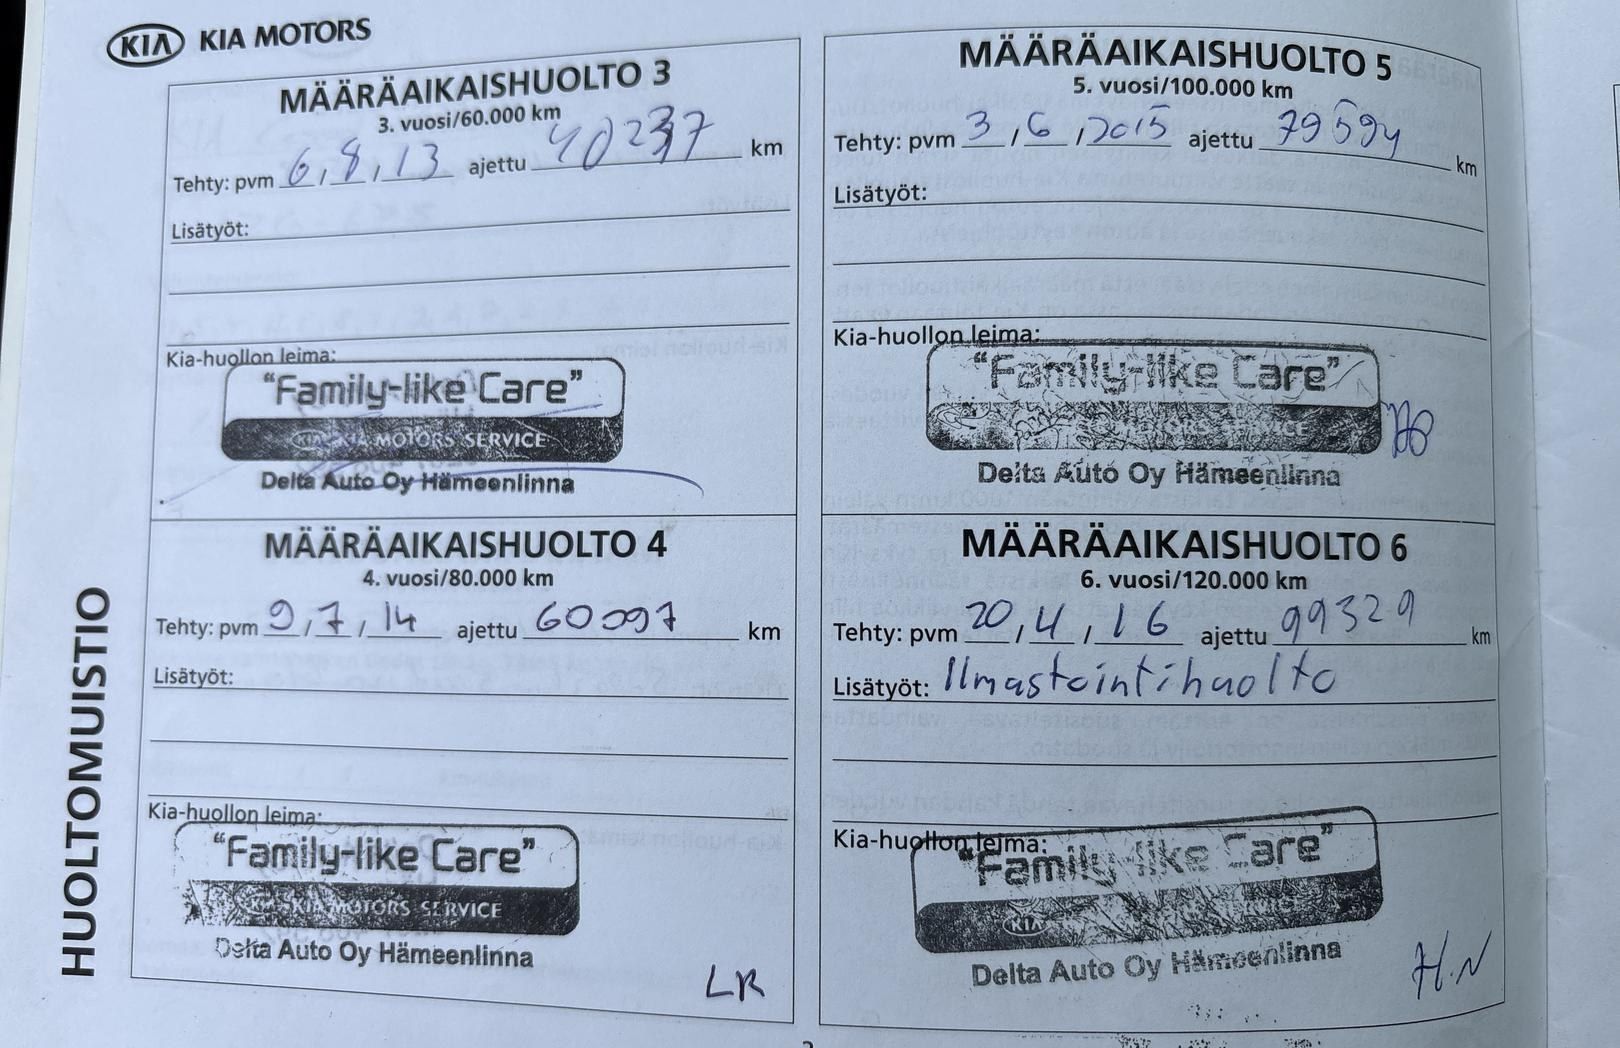 KIA KIA MOTORS
HUOLTOMUISTIO
MÄÄRÄAIKAISHUOLTO 3
3. vuosi/60.000 km
Tehty: pvm 6,8,13 ajettu 40237 km
Lisätyöt:
Kia-huollon leima:
"Family-like Care"
KIA KIA MOTORS SERVICE
Delta Auto Oy Hämeenlinna
MÄÄRÄAIKAISHUOLTO 4
4. vuosi/80.000 km
Tehty: pvm 9,7,14 ajettu 60097 km
Lisätyöt:
Kia-huollon leima:
"Family-like Care"
KIA KIA MOTORS SERVICE
Delta Auto Oy Hämeenlinna
LR
MÄÄRÄAIKAISHUOLTO 5
5. vuosi/100.000 km
Tehty: pvm 3,6,2015 ajettu 79594 km
Lisätyöt:
Kia-huollon leima:
"Family-like Care"
MOTORS SERVICE
Delta Auto Oy Hämeenlinna
MÄÄRÄAIKAISHUOLTO 6
6. vuosi/120.000 km
Tehty: pvm 20/4/16 ajettu 99329 km
Lisätyöt: Ilmastointihuolto
Kia-huollon leima:
"Family-like Care"
KIA
Delta Auto Oy Hämeenlinna
H.N